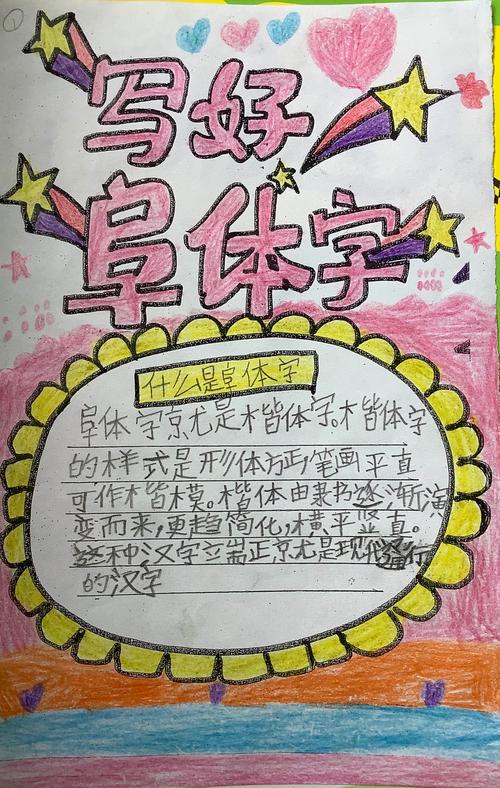 ①
写好
阜体字
什么是阜体字
阜体字京尤是楷体字。楷体字
的样式是形体方正,笔画平直
可作楷模。楷体由隶书逐渐演
变而来,更趋简化,横平竖直。
这种汉字立端正京尤是现代
的汉字